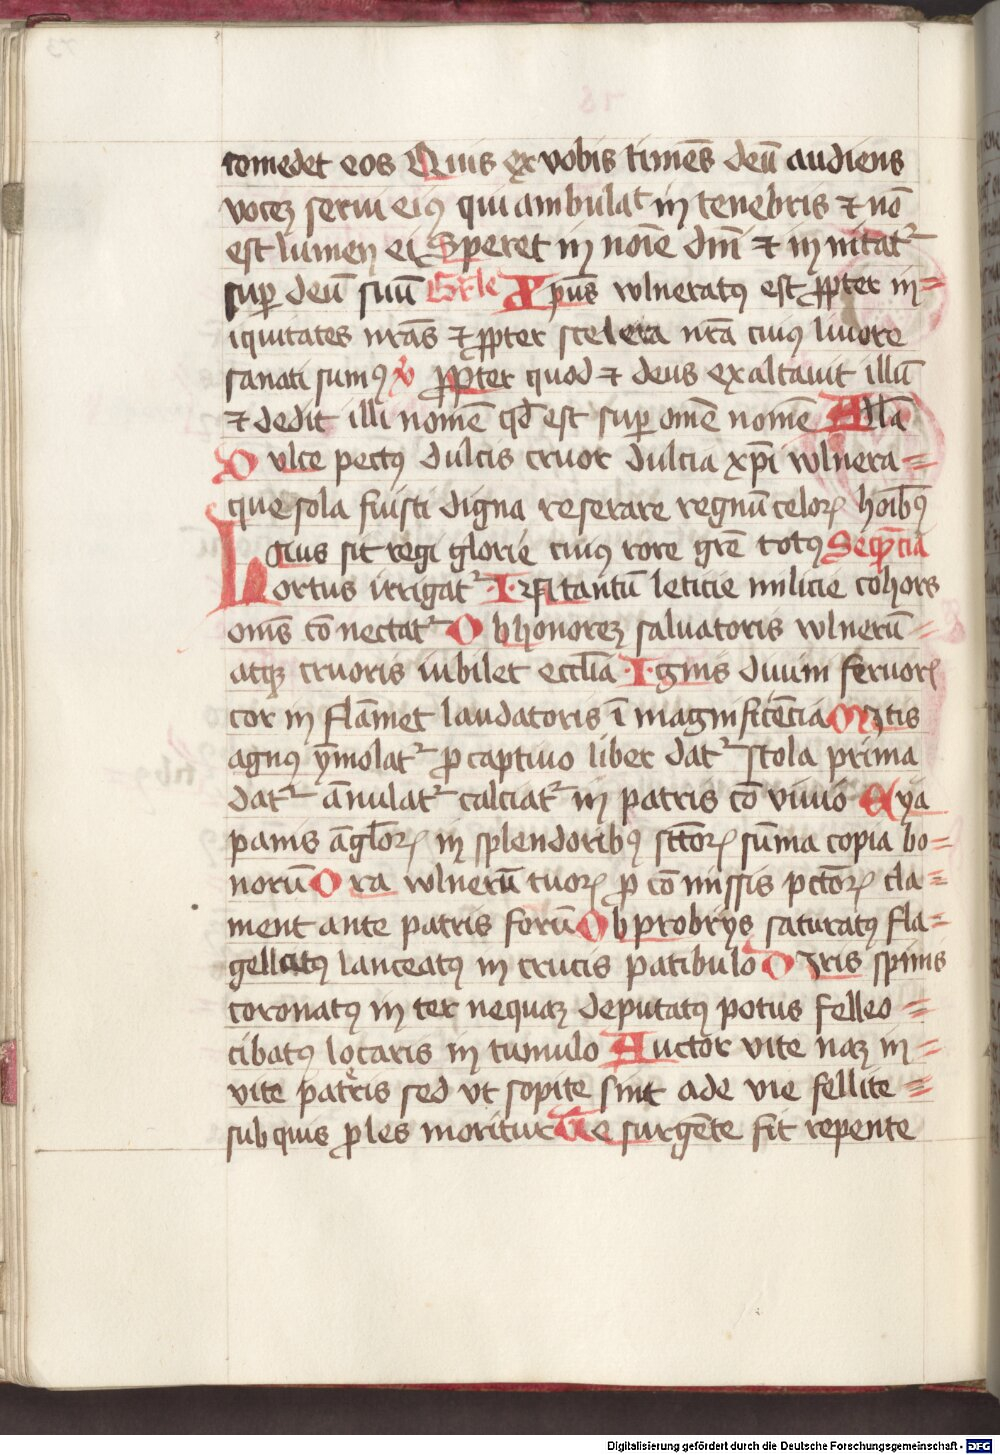 comedet eos Quis ex vobis timēs deū audiens
vocēꝫ serui eiꝰ qui ambulat in tenebris ⁊ nō
est lumen ei Speret in noīe dnī ⁊ innitat᷑
suꝑ deū suū Gͬle Xp̄us wlneratꝰ est ꝓpter in=
iquitates nr̄as ⁊ ꝓpter scelera nr̄a cuius liuore
sanati sumꝰ v̄ Propter quod ⁊ deus exaltauit illū
⁊ dedit illi nomē qd̄ est suꝑ omē nomē Al̄la
Dulce pectꝰ dulcis cruor dulcia xp̄i wlnera=
que sola fuisti digna reserare regnū celoꝝ hoībꝰ
Laus sit regi glorie cuius rore gr̄e totꝰ Seqͣēcia
hortus irrigat᷑ · In tantū leticie milicie cohors
om̄s cōnectat᷑ Ob honorēꝫ saluatoris wlnerū=
atqꝫ cruoris iubilet eccl̄ia · Ignis diuini feruoꝝ
cor inflāmet laudatoris ī magnificēcia Mitis
agnꝰ ymolat᷑ ꝓ captiuo liber dat᷑ stola prima
dat᷑ ānulat᷑ calciat᷑ in patris cōviuio Eya
panis āgl̄oꝝ in splendoribꝰ sc̄toꝝ sūma copia bo=
norū Ora wlnerū tuoꝝ ꝓ cōmissis pctōꝝ cla=
ment ante patris forū Obprobrys saturatꝰ fla=
gellatꝰ lanceatꝰ in crucis patibulo Diris spinis
coronatꝰ inter nequāꝫ deputatꝰ potus felleo=
cibatꝰ locaris in tumulo Auctor vite naꝫ in=
vite patēris sed vt sopite sint ade vie fellite=
sub quis ꝓles moritur Te surgēte fit repente
Digitalisierung gefördert durch die Deutsche Forschungsgemeinschaft - DFG